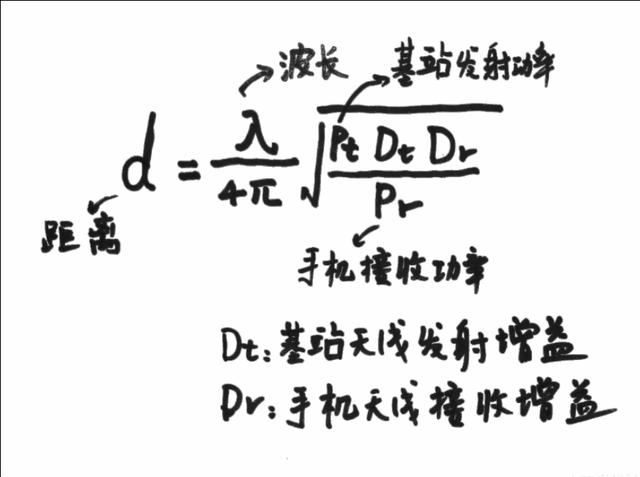 波长
基站发射功率
d = λ/4π √(Pt Dt Dr / Pr)
距离
手机接收功率
Dt: 基站天线发射增益
Dr: 手机天线接收增益